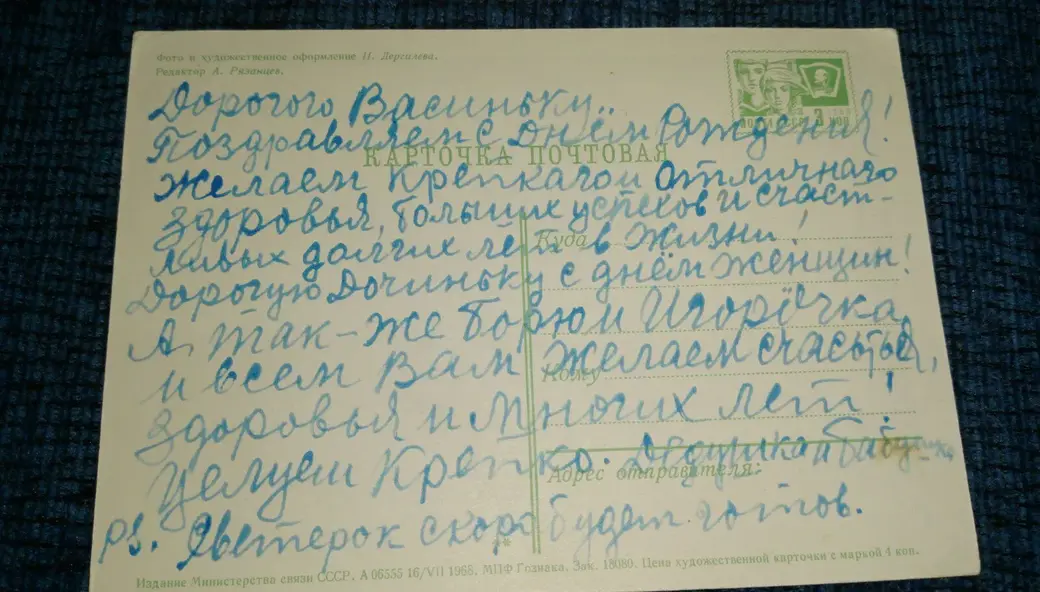 Фото и художественное оформление Н. Дергилева.
Редактор А. Рязанцев.
ПОЧТА СССР 3 КОП
КАРТОЧКА ПОЧТОВАЯ
Дорогого Васиньку..
Поздравляем с Днём Рождения!
Желаем Крепкагои отличнаго
здоровья, больших успехов и счаст-
ливых долгих лет в жизни!
Дорогую Дочиньку с днём женщин!
А так-же Борю и Игорёчка
и всем Вам желаем счастья,
здоровья и многих лет!
Целуем Крепко. Дедушка и Бабушка
PS. Светерок скоро будет готов.
Куда
Кому
Адрес отправителя:
Издание Министерства связи СССР. А 06555 16/VII 1968. МПФ Гознака. Зак. 18080. Цена художественной карточки с маркой 4 коп.